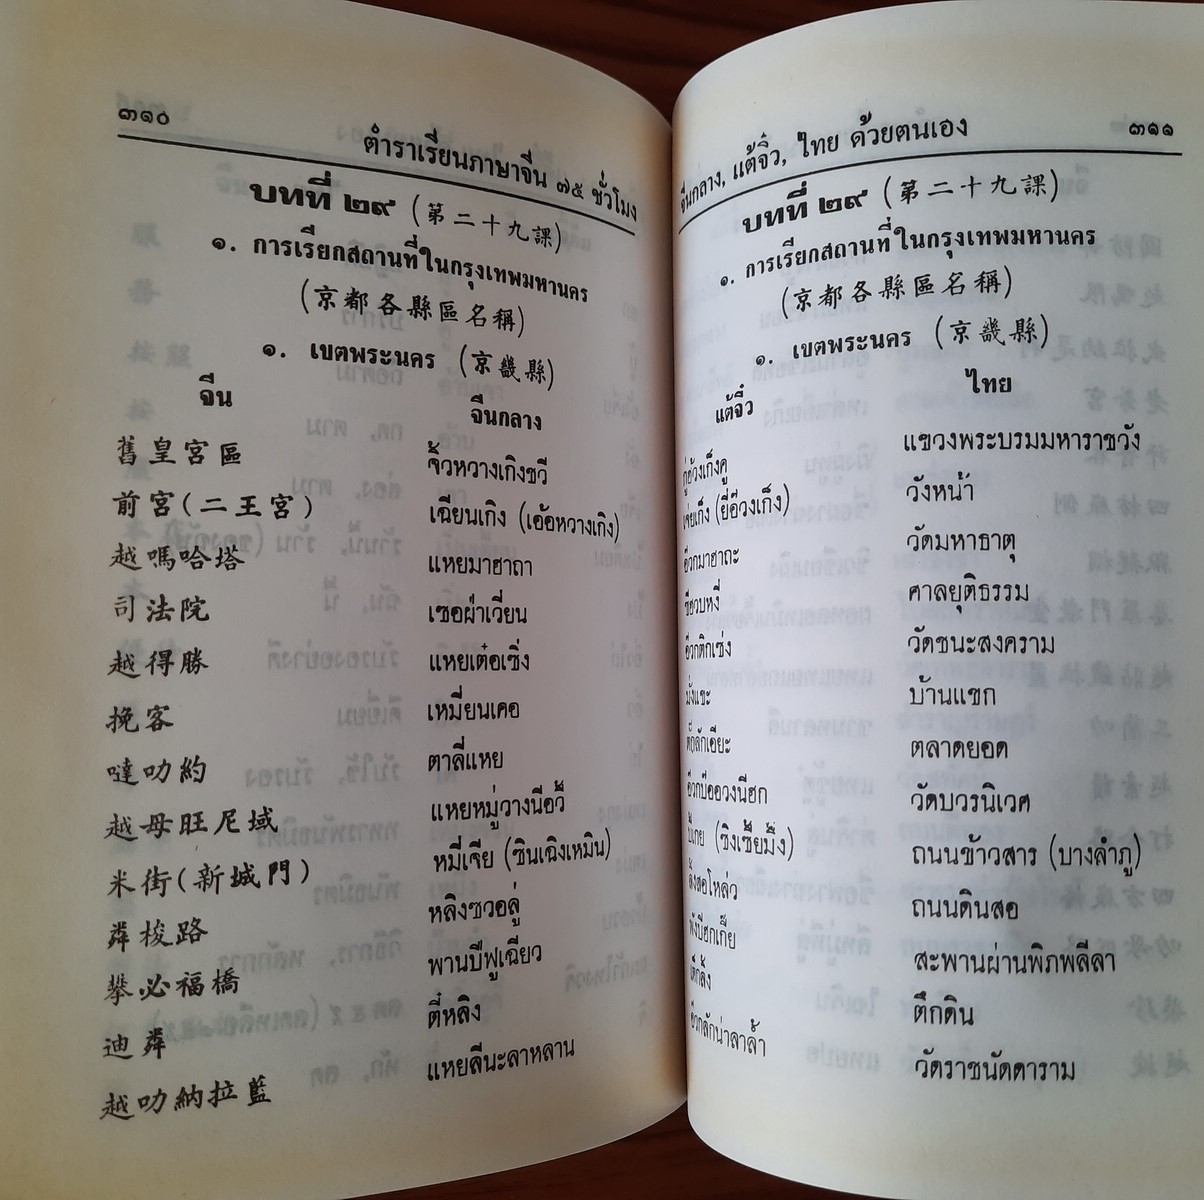 ๓๑๐
ตำราเรียนภาษาจีน ๗๕ ชั่วโมง
บทที่ ๒๙ (第二十九課)
๑. การเรียกสถานที่ในกรุงเทพมหานคร
(京都各縣區名稱)
๑. เขตพระนคร (京畿縣)
จีน จีนกลาง
舊皇宮區 จิ้วหวางเกิงชวี
前宮(二王宮) เฉียนเกิง (เอ้อหวางเกิง)
越嗎哈塔 แหยมาฮาถา
司法院 เซอฝ่าเวี่ยน
越得勝 แหยเต๋อเชิ่ง
挽客 เหมี่ยนเคอ
噠叻約 ตาลี่แหย
越母旺尼域 แหยหมู่วางนีอวี้
米街(新城門) หมี่เจีย (ซินเฉิงเหมิน)
粦梭路 หลิงซวอลู่
攀必福橋 พานปีฟูเฉียว
迪粦 ตี๋หลิง
越叻納拉藍 แหยลีนะลาหลาน
๓๑๑
จีนกลาง, แต้จิ๋ว, ไทย ด้วยตนเอง
บทที่ ๒๙ (第二十九課)
๑. การเรียกสถานที่ในกรุงเทพมหานคร
(京都各縣區名稱)
๑. เขตพระนคร (京畿縣)
แต้จิ๋ว ไทย
กู๋ฮ้วงเก็งคู แขวงพระบรมมหาราชวัง
(ยี่อ๊วงเก็ง) วังหน้า
อ๊วกมาฮาถะ วัดมหาธาตุ
ศาลยุติธรรม
อ๊วกติกเซ่ง วัดชนะสงคราม
มั่งแขะ บ้านแขก
ตลาดยอด
วัดบวรนิเวศ
(ซิงเซี้ยมึ้ง) ถนนข้าวสาร (บางลำภู)
ถนนดินสอ
สะพานผ่านพิภพลีลา
ตึกดิน
วัดราชนัดดาราม